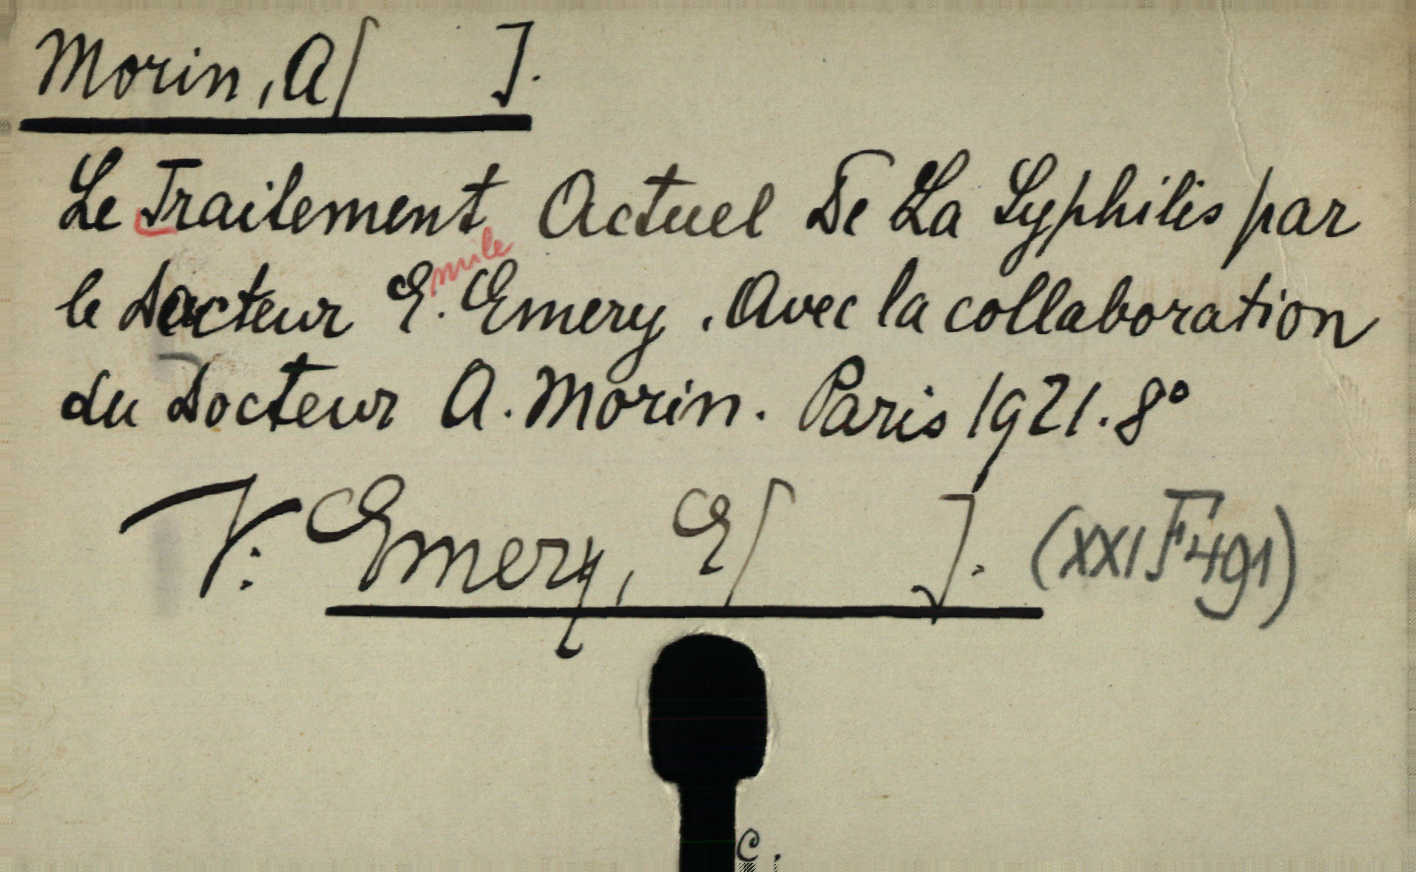 Morin, A[ ].
Le Traitement Actuel De La Syphilis par
le Docteur E.mile Emery. Avec la collaboration
du Docteur A. Morin. Paris 1921. 8°
V: Emery, E[ ]. (XXI F 491)
c.